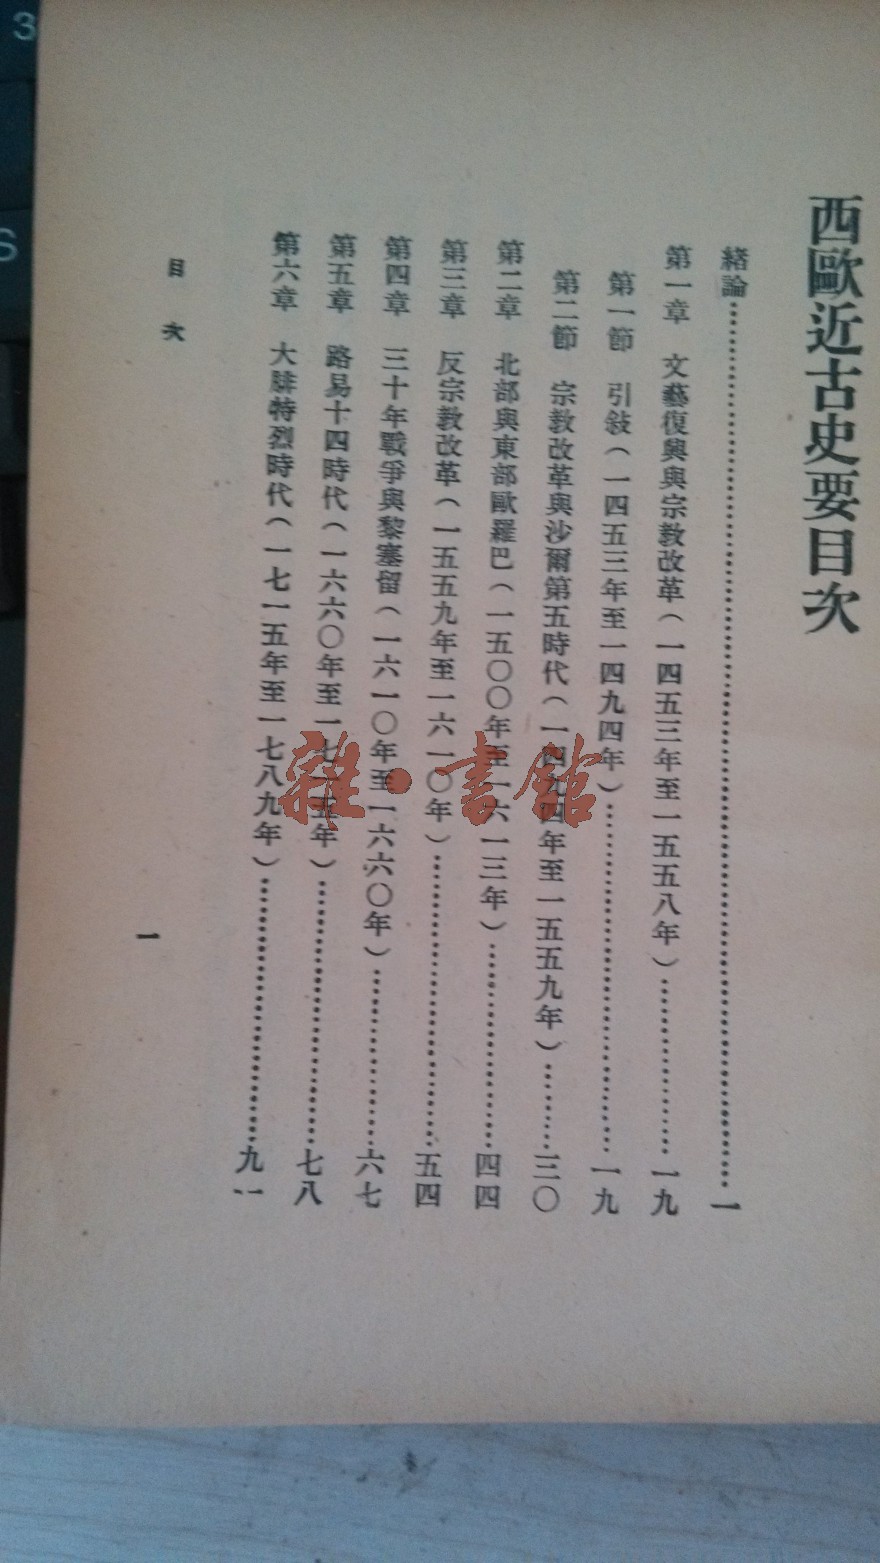 西歐近古史要目次
緒論……………………………………一
第一章　文藝復興與宗教改革(一四五三年至一五五八年)…………一九
第一節　引敍(一四五三年至一四九四年)…………………一九
第二節　宗教改革與沙爾第五時代(一四九四年至一五五九年)………三〇
第二章　北部與東部歐羅巴(一五〇〇年至一六一三年)…………四四
第三章　反宗教改革(一五五九年至一六一〇年)………………五四
第四章　三十年戰爭與黎塞留(一六一〇年至一六六〇年)…………六七
第五章　路易十四時代(一六六〇年至一七一五年)………………七八
第六章　大腓特烈時代(一七一五年至一七八九年)………………九一
目次
一
雜·書館
3
S